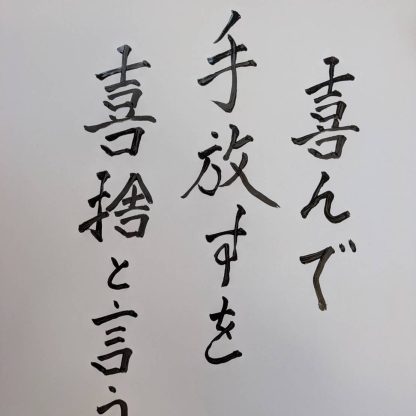 喜んで
手放すを
喜捨と言う